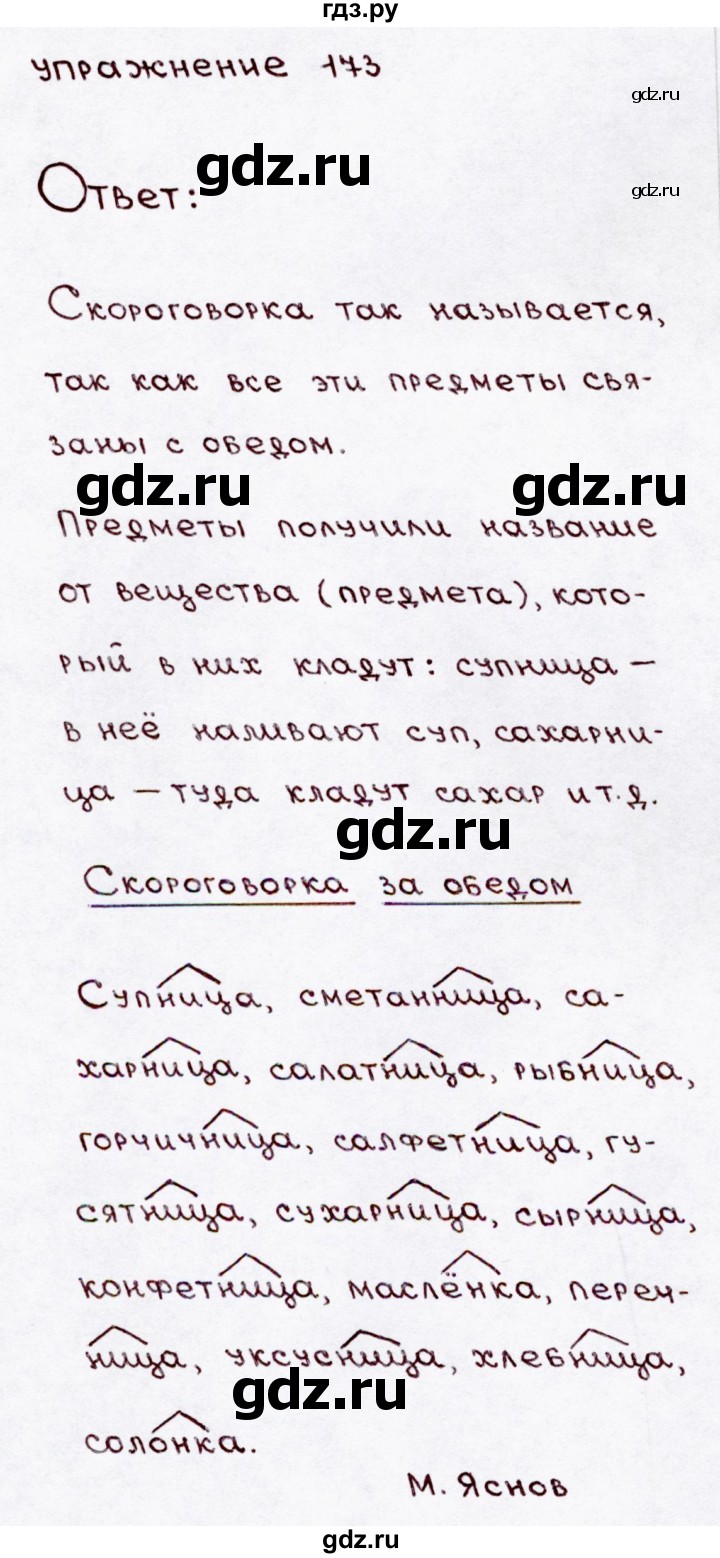 гдз.ру
упражнение 173
gdz.ru
gdz.ru
Ответ:
gdz.ru
Скороговорка так называется,
так как все эти предметы свя-
заны с обедом.
gdz.ru
gdz.ru
Предметы получили название
от вещества (предмета), кото-
рый в них кладут: супница –
в неё наливают суп, сахарни-
ца – туда кладут сахар и т.д.
gdz.ru
Скороговорка за обедом
Супница, сметанница, са-
харница, салатница, рыбница,
горчичница, салфетница, гу-
сятница, сухарница, сырница,
конфетница, маслёнка, переч-
ница, уксусница, хлебница,
gdz.ru
солонка.
М. Яснов
gdz.ru